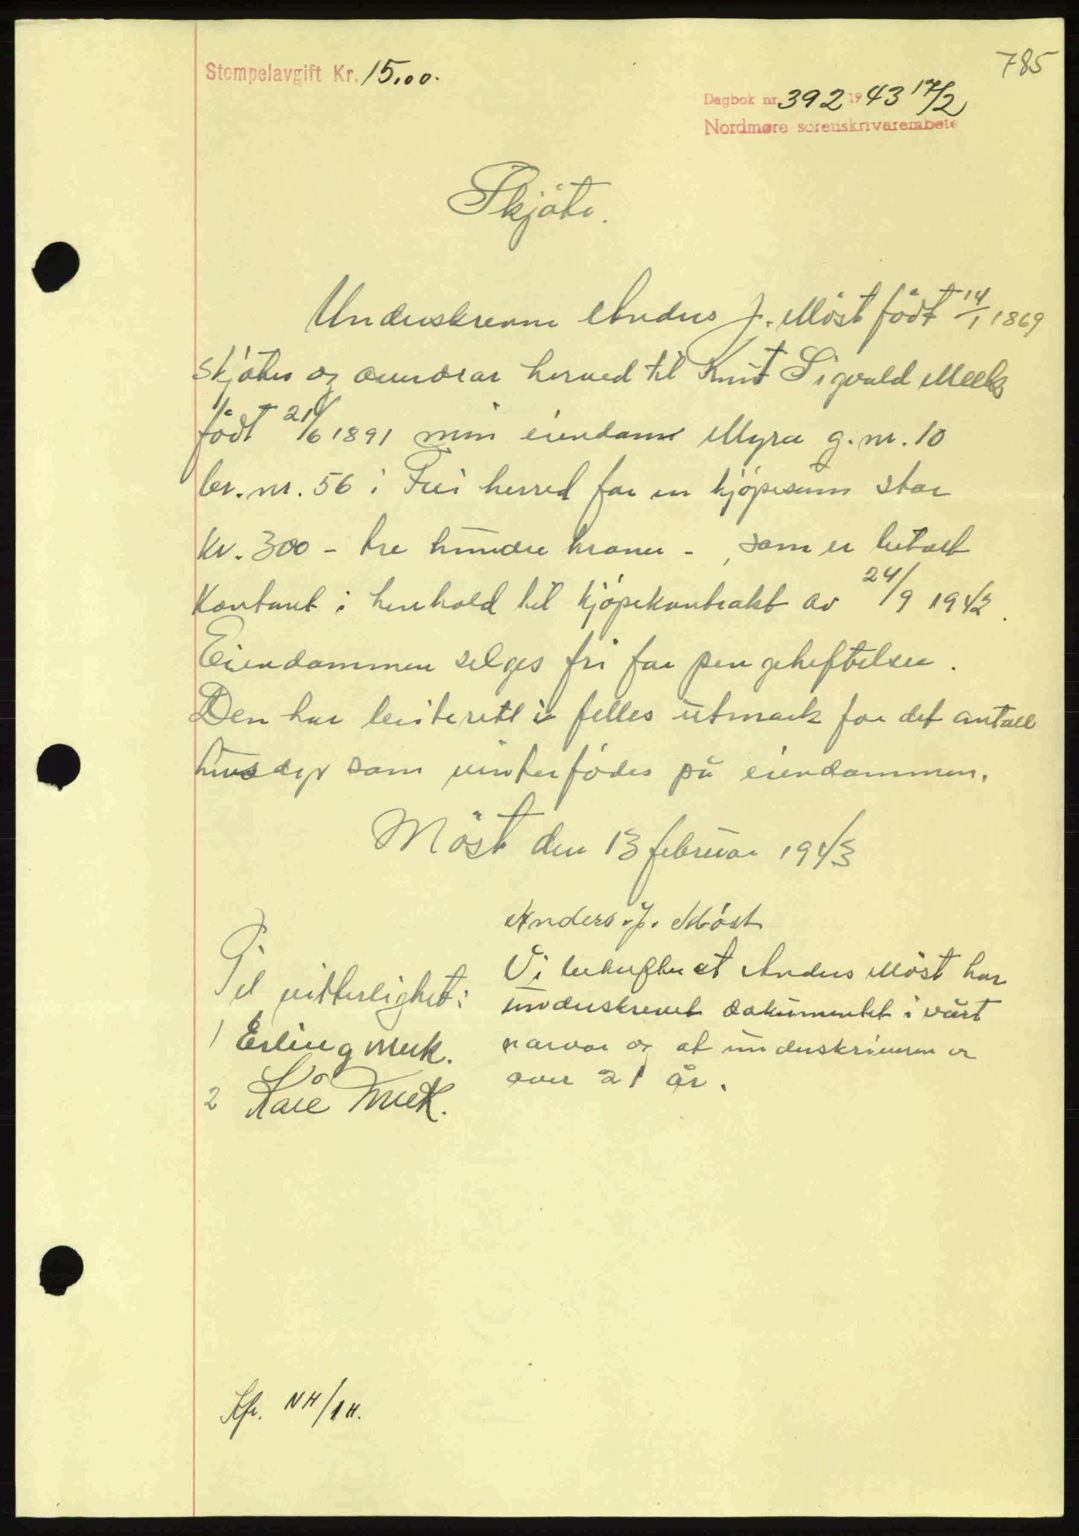 785
Stempelavgift Kr. 15,00.
Dagbok nr. 392 1943 17/2
Nordmøre sorenskrivarembete
Skjöte.
Underskrevne Anders J. Möst födt 14/1 1869
skjöter og overdrar herved til Knut Sigvald Meek
födt 21/6 1891 min eiendom Myra g.nr. 10
br.nr. 56 i Frei herred for en kjöpesum stor
kr. 300 - tre hundre kroner - , som er betalt
kontant i henhold til kjöpekontrakt av 24/9 1942.
Eiendommen selges fri for pengeheftelser.
Den har beiterett i felles utmark for det antall
husdyr som vinterfödes på eiendommen.
Möst den 13 februar 1943
Anders J. Möst
Til vitterlighet:
1 Erling Meek.
2 Kåre Meek.
Vi bekrefter at Anders Möst har
underskrevet dokumentet i vårt
nærvær og at underskriveren er
over 21 år.
Kfr. NH/AH.